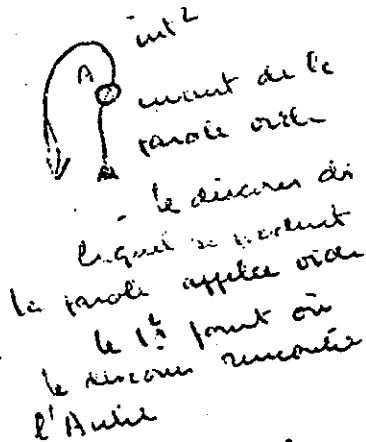 int²
A
de la
parole vide
le discours
lequel se produit
la parole appelée vide
le 1er point où
le discours rencontre
l'Autre